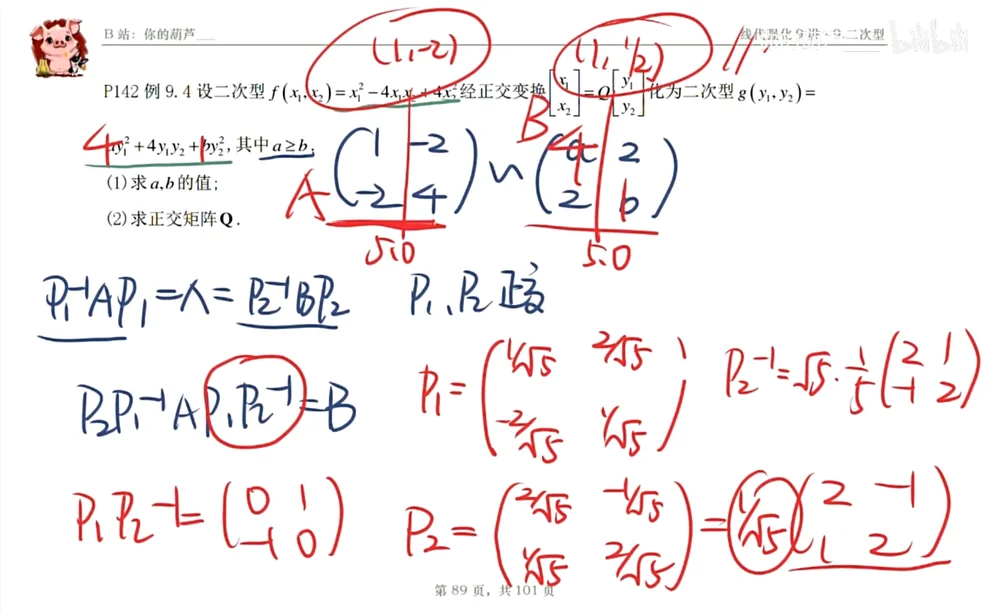 B 站：你的葫芦__
线代强化 9 讲-9.二次型
bilibili
(1,-2)
(1,1/2)
P142 例 9.4 设二次型 f(x₁,x₂)=x₁²-4x₁x₂+4x₂² 经正交变换 [x₁ x₂]=Q[y₁ y₂] 化为二次型 g(y₁,y₂)=
ay₁²+4y₁y₂+by₂², 其中 a≥b.
4 1
A (1 -2
-2 4) ∽ B (a 2
2 b)
4
(1) 求 a,b 的值;
(2) 求正交矩阵 Q.
5.0 5.0
P₁⁻¹AP₁=Λ=P₂⁻¹BP₂ P₁、P₂ 正交
P₂P₁⁻¹AP₁P₂⁻¹=B
P₁=(1/√5 2/√5
-2/√5 1/√5)
P₂⁻¹=√5·1/5(2 1
-1 2)
P₁P₂⁻¹=(0 1
-1 0)
P₂=(2/√5 -1/√5
1/√5 2/√5)=1/√5(2 -1
1 2)
第 89 页，共 101 页